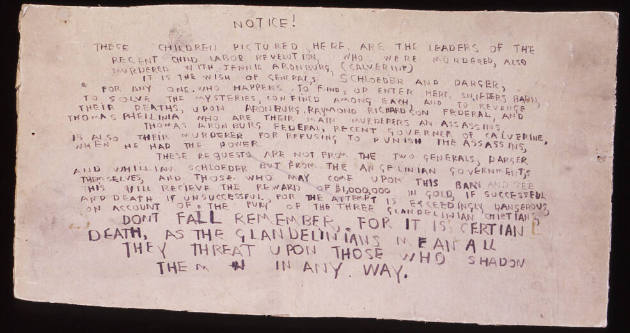 NOTICE!
THESE CHILDREN PICTURED HERE, ARE THE LEADERS OF THE
RECENT CHILD LABOR REVOLUTION, WHO WERE MURDERED, ALSO
MURDERED WITH JENNIE ARONBURG, (CALVERINE)
IT IS THE WISH OF GENERALS, SCHLOEDER AND DARGER,
FOR ANY ONE, WHO HAPPENS TO FIND, OR ENTER HERE, BARN,
TO SOLVE THE MYSTERIES, CONFINED AMONG EACH, AND TO REVENGE
THEIR DEATHS, UPON ARONBURG, RAYMOND RICHARDSON FEDERAL, AND
THOMAS PHEILINIA WHO ARE THEIR MAIN MURDERERS AN ASSASSINS.
THOMAS ARONBURG FEDERAL, RECENT GOVERNER OF CALVERINE,
IS ALSO THEIR MURDERER FOR REFUSING TO PUNISH THE ASSASSINS,
WHEN HE HAD THE POWER.
THESE REQUESTS ARE NOT FROM THE TWO GENERALS, DARGER
AND WHILLIAN SCHLOEDER BUT FROM THE ANGELINIAN GOVERNMENTS
THEMSELVES, AND THOSE WHO MAY COME UPON THIS BARN AND SEE
THIS WILL RECIEVE THE REWARD OF $1,000,000 IN GOLD, IF SUCCESSFUL
AND DEATH IF UNSUCCESSFUL, FOR THE ATTEMPT IS EXCEEDINGLY DANGEROUS
ON ACCOUNT OF THE OF THE THREE GLANDELINIAN
DONT FALL REMEMBER, FOR IT IS CERTIAN
DEATH, AS THE GLANDELINIANS MEAN ALL
THEY THREAT UPON THOSE WHO SHADON
THEM IN ANY WAY.